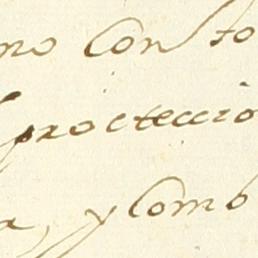 no Con to
proteccio
a, y Comb